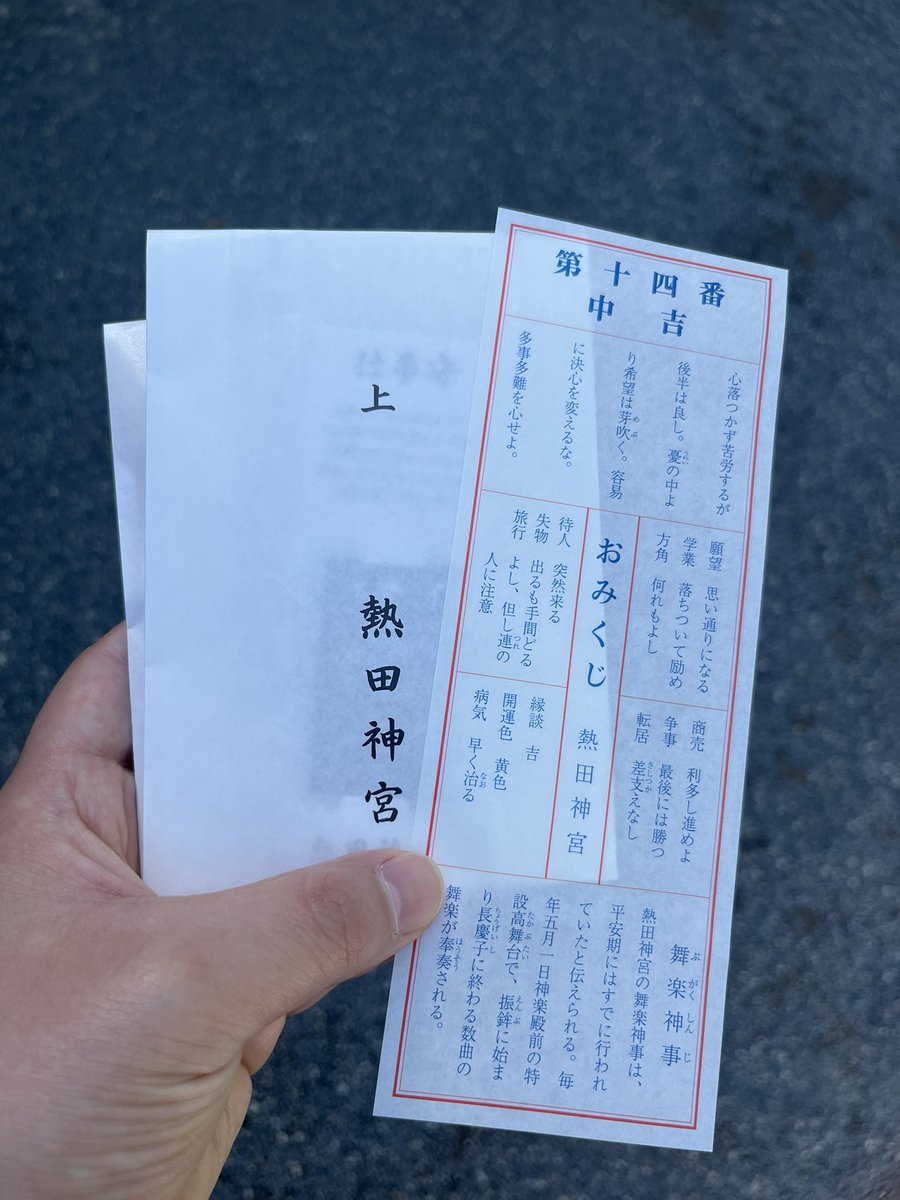 第十四番
中吉
心落つかず苦労するが
後半は良し。憂の中よ
り希望は芽吹く。容易
に決心を変えるな。
多事多難を心せよ。
願望 思い通りになる
学業 落ちついて励め
方角 何れもよし
商売 利多し進めよ
争事 最後には勝つ
転居 差支えなし
おみくじ 熱田神宮
待人 突然来る
失物 出るも手間どる
旅行 よし、但し連の
人に注意
縁談 吉
開運色 黄色
病気 早く治る
舞楽神事
熱田神宮の舞楽神事は、
平安期にはすでに行われ
ていたと伝えられる。毎
年五月一日神楽殿前の特
設高舞台で、振鉾に始ま
り長慶子に終わる数曲の
舞楽が奉奏される。
上
熱田神宮